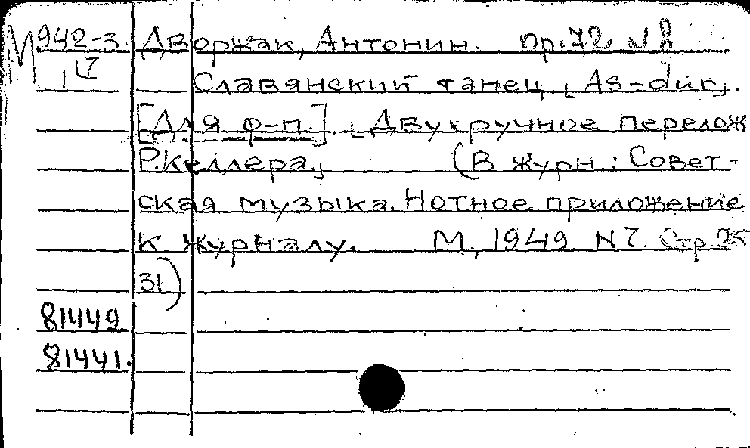 М 942-3 Дворжак, Антонин. Op.72. N 8
17 Славянский танец [As-dur].
[Для ф-п.]. [Двухручное перелож
Р.Келлера.] (В журн: Совет-
ская музыка. Нотное приложение
к журналу. М., 1949 N 7. Стр.
31)
81449
81441.